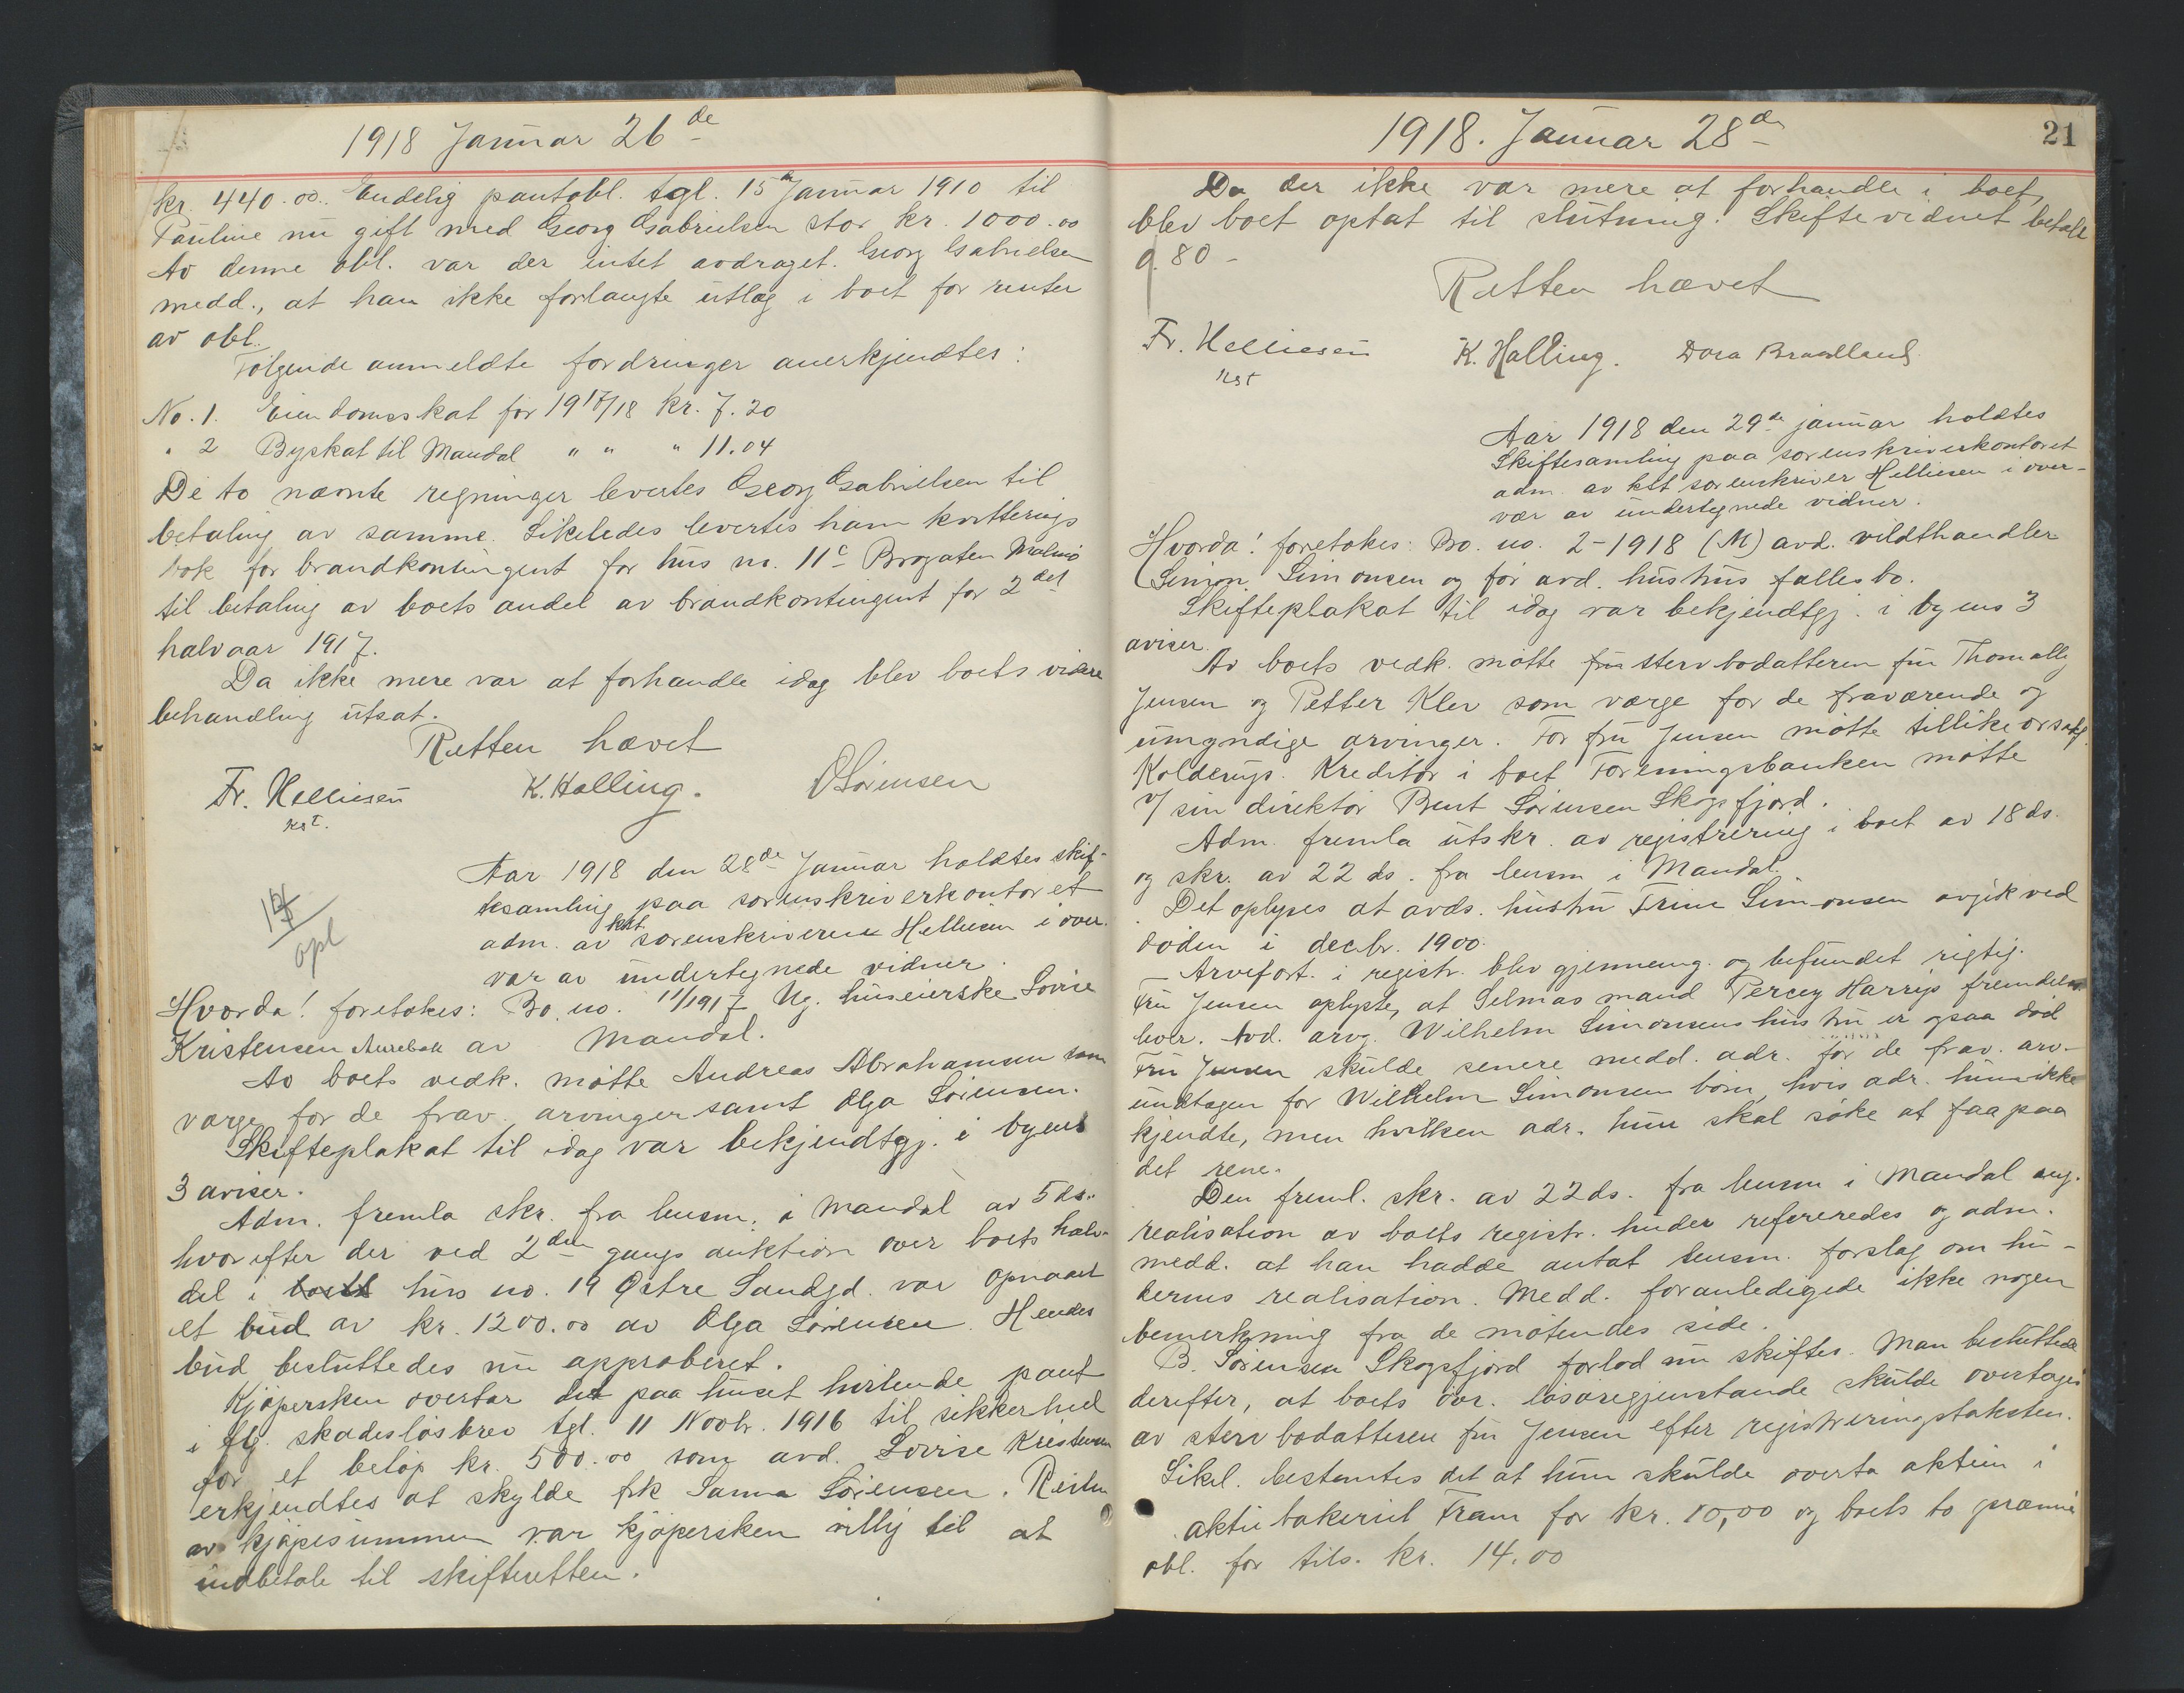 1918 Januar 26de
kr. 440.00. Endelig pantobl. tgl. 15de Januar 1910 til
Pauline nu gift med Georg Gabrielsen stor kr. 1000.00
Av denne obl. var der intet avdraget. Georg Gabrielsen
medd., at han ikke forlangte utlæg i boet for renter
av obl.
Følgende anmeldte fordringer anerkjendtes:
No. 1. Eiendomsskat for 1917/18 kr. 7.20
" 2 Byskat til Mandal " " " 11.04
De to nævnte regninger levertes Georg Gabrielsen til
betaling av samme. Likeledes levertes ham kvitterings
bok for brandkontingent for hus no. 11c Brogaten Malmø
til betaling av boets andel av brandkontingent for 2det
halvaar 1917.
Da ikke mere var at forhandle idag blev boets videre
behandling utsat.
Retten hævet
Fr. Helliesen K. Halling. O Sørensen
kst.
Aar 1918 den 28de Januar holdtes skif-
tesamling paa sorenskriverkontoret
adm. av kst. sorenskriveren Helliesen i over-
vær av undertegnede vidner.
opl
Hvorda! foretokes: Bo no. 11/1917 Ug. huseierske Lovise
Kristensen av Mandal.
Av boets vedk. møtte Andreas Abrahamsen som
værge for de frav. arvinger samt Olga Sørensen.
Skifteplakat til idag var bekjendtgj. i byens
3 aviser.
Adm. fremla skr. fra lensm. i Mandal av 5 ds.
hvorefter der ved 2den gangs auktion over boets halv-
del i boets hus no. 19 Østre Sandgd. var opnaaet
et bud av kr. 1200.00 av Olga Sørensen. Hendes
bud besluttedes nu approberet.
Kjøpersken overtar det paa huset heftende pant
i flg. skadesløsbrev tgl. 11 Novbr. 1916 til sikkerhed
for et beløp kr. 500.00 som avd. Lovise Kristensen
erkjendtes at skylde frk Sanna Sørensen. Resten
av kjøpesummen var kjøpersken villig til at
indbetale til skifteretten.
1918. Januar 28de
21
Da der ikke var mere at forhandle i boet,
blev boet optat til slutning. Skiftevidnet betalt
80 -
Retten hævet
Fr. Helliesen K. Halling. Dora Braadland
kst
Aar 1918 den 29de januar holdtes
Skiftesamling paa sorenskriverkontoret
adm. av kst sorenskriver Helliesen i over-
vær av undertegnede vidner.
Hvorda! foretokes: Bo. no. 2-1918 (M) avd. vildthandler
Simon Simonsen og før avd. hustrus fællesbo.
Skifteplakat til idag var bekjendtgj. i byens 3
aviser.
Av boets vedk. møtte fru stervbodatteren fru Thomally
Jensen og Petter Klev som værge for de fraværende og
umyndige arvinger. For fru Jensen møtte tillike orsakf.
Kolderup. Kreditor i boet Foreningsbanken møtte
v/ sin direktør Bent Sørensen Skogsfjord.
Adm. fremla utskr. av registrering i boet av 18 ds.
og skr. av 22 ds. fra lensm i Mandal.
Det oplyses at avds. hustru Trine Simonsen avgik ved
døden i decbr. 1900.
Arvefort. i registr. blev gjennemg. og befundet rigtig.
Fru Jensen oplyste, at Selmas mand Percey Harrys fremdeles
lever. Avd. arvg. Wilhelm Simonsens hustru er ogsaa død
Fru Jensen skulde senere medd. adr. for de frav. arv.
undtagen for Wilhelm Simonsen børn, hvis adr. hun ikke
kjendte, men hvilken adr. hun skal søke at faa paa
det rene.
Den freml. skr. av 22 ds. fra lensm i Mandal ang.
realisation av boets registr. huder refereredes og adm.
medd. at han hadde antat lensm. forslag om hu-
dernes realisation. Medd. foranledigede ikke nogen
bemerkning fra de møtendes side.
B. Sørensen Skogsfjord forlod nu skiftes. Man besluttede
derefter, at boets øvr. løsøregjenstande skulde overtages
av stervbodatteren fru Jensen efter registreringstaksten.
Likel. bestemtes det at hun skulde overta aktien i
aktiebakeriet Fram for kr. 10,00 og boets to præmie
obl. for tils. kr. 14.00